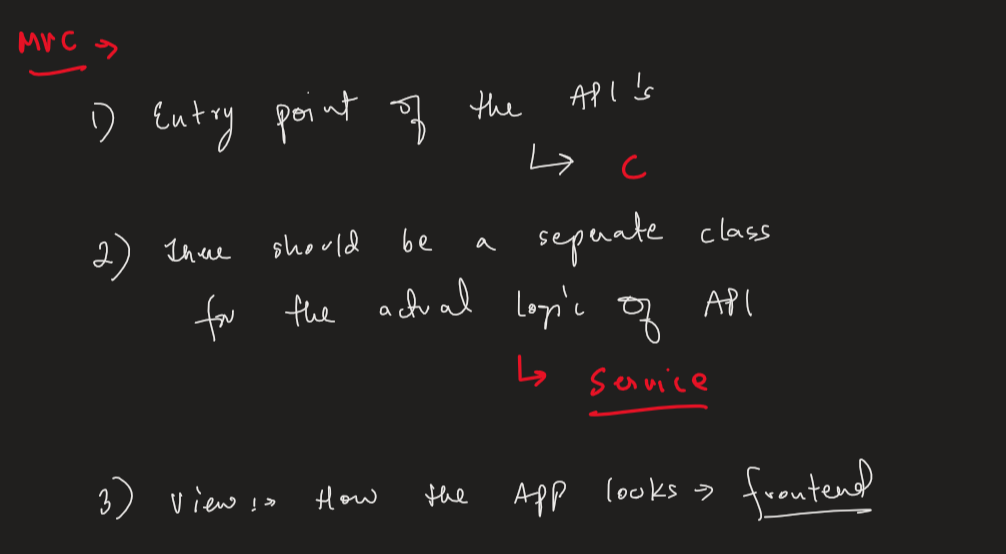 MVC →
1) Entry point of the API's
↳ C
2) There should be a seperate class
for the actual logic of API
↳ Service
3) View :→ How the App looks → frontend